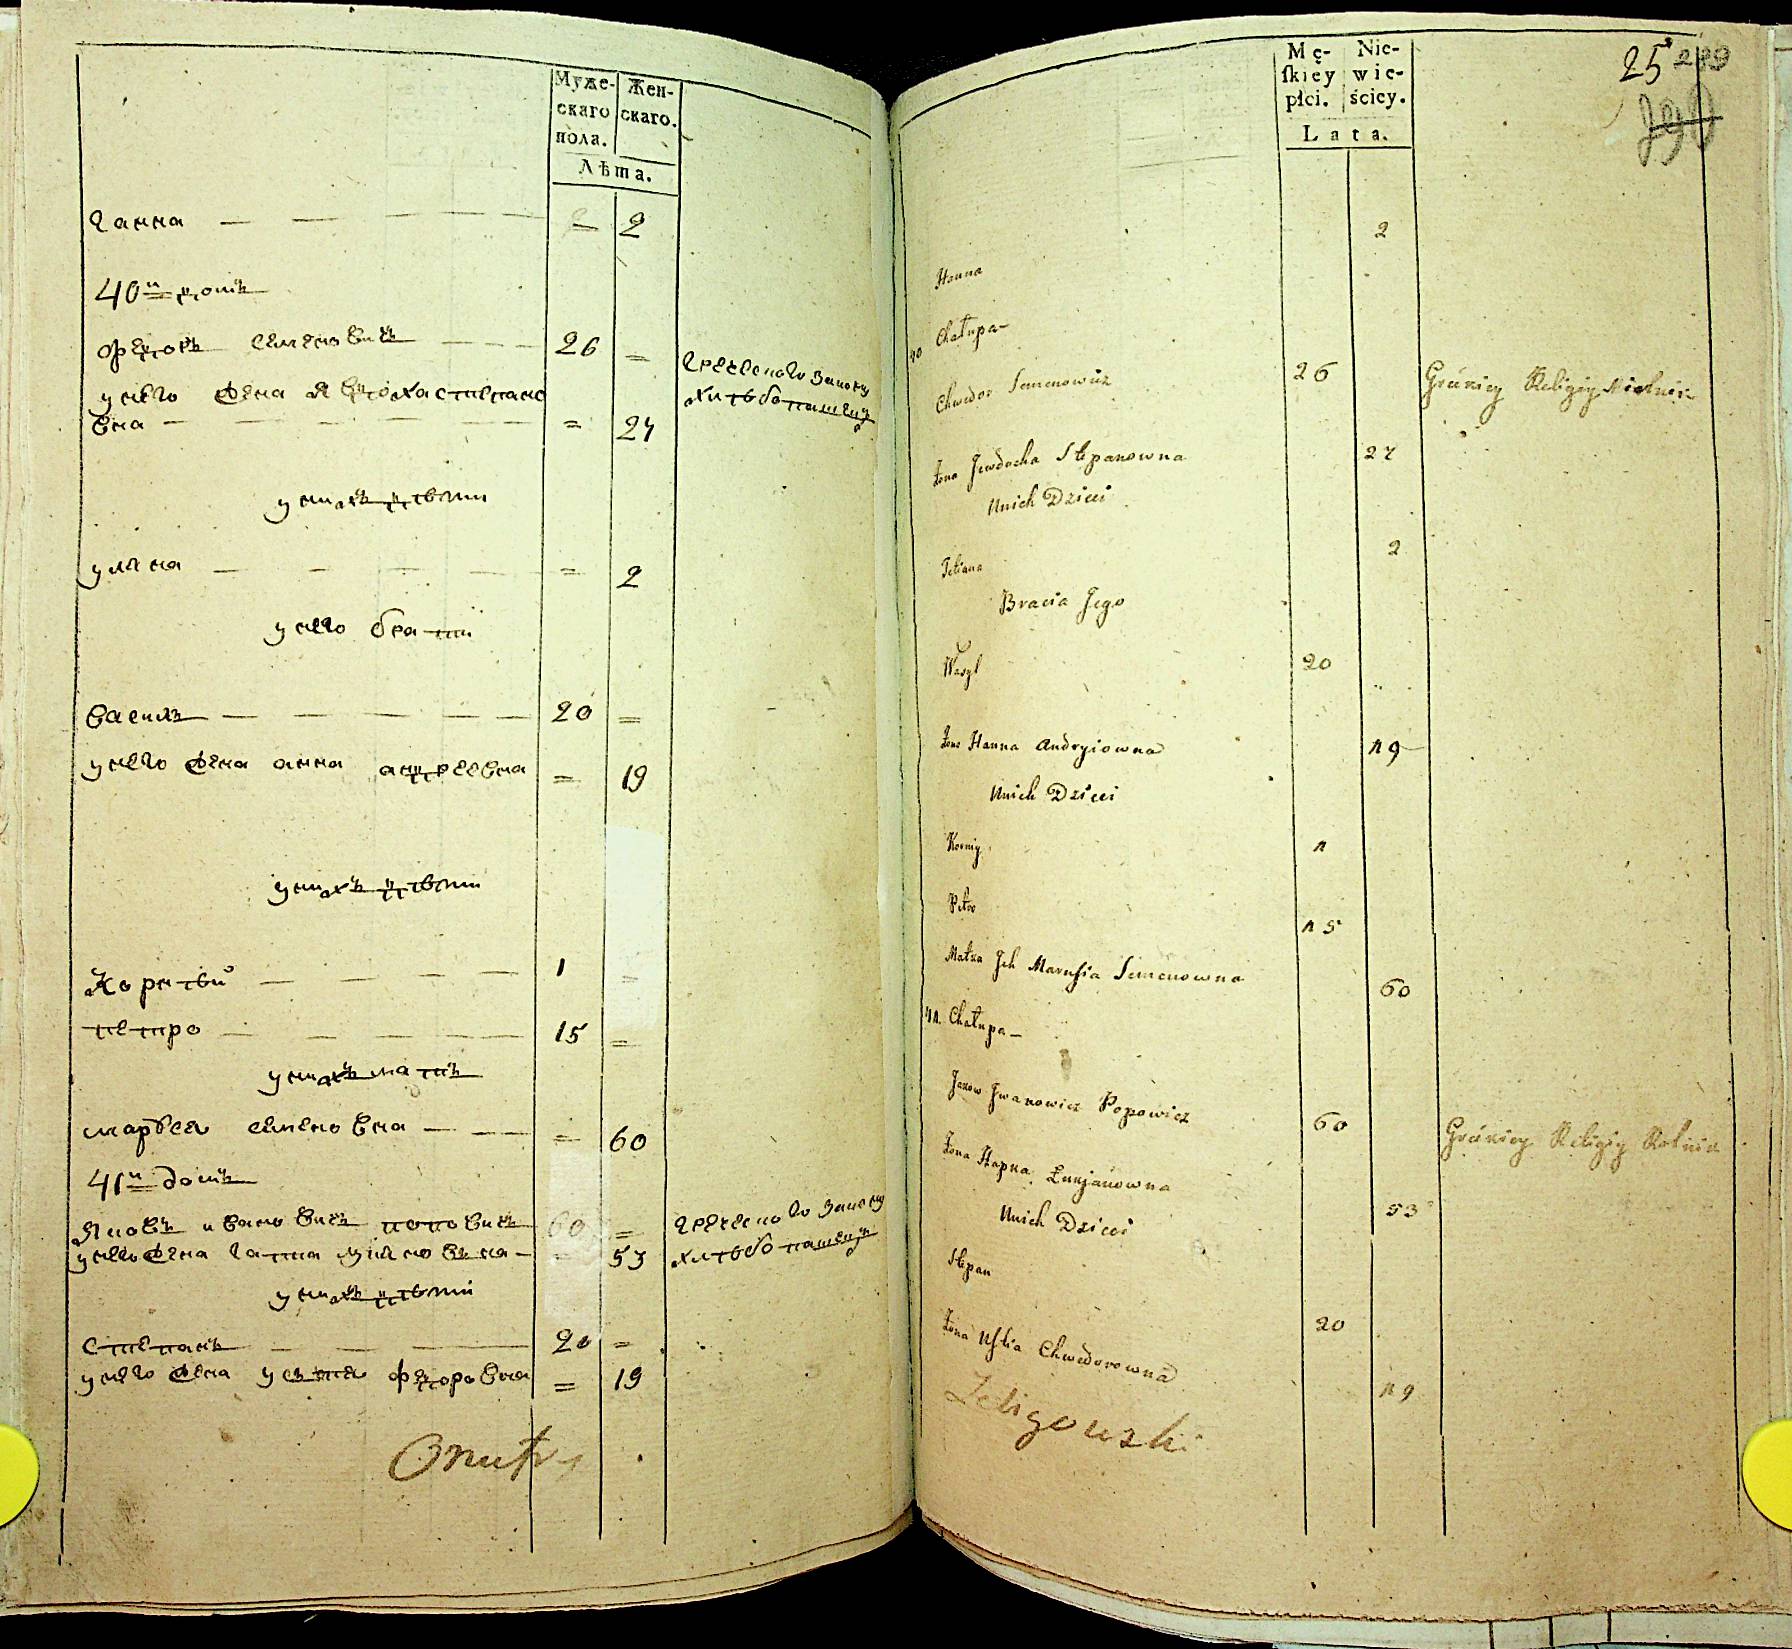 Муже-
скаго
пола.
Жен-
скаго.
Лѣта.
ганна — — — — — 2
40й домъ
федоръ семеновичъ — — 26 =
греческого закону
унего жена явдоха степано
хлѣбопашецъ
вна — — — — — = 27
унихъ дѣти
уляна — — — — = 2
унего братя
василь — — — — — 20 =
унего жена анна андреевна = 19
унихъ дѣти
Корнѣй — — — — 1 =
петро — — — — 15 =
унихъ мать
марʼѣея семеновна — — = 60
41й домъ
Яковъ ивановичъ поповичъ 60 =
греческого закону
унего жена гапка лукяновъна — = 53
хлѣбопашецъ
унихъ дѣти
степанъ — — — 20 =
унего жена устея федоровна = 19
Mę-
skiey
płci.
Nie-
wie-
ściey.
Lata.
25
289
290
Hanna 2
40 Chałupa —
Chwedor Semenowicz 26 Gréckiey Religiy Rolnik
Żona Jewdocha Stepanowna 27
Unich Dzieci
Tetiana 2
Bracia Jego
Wasyl 20
Żona Hanna Andryiowna 19
Unich Dzieci
Korniy 1
Petro 15
Matka Jch Marusia Semenowna 60
41. Chałupa —
Jakow Jwanowicz Popowicz 60 Gréckiey Religiy Rolnik
Żona Hapka Łukjanowna 53
Unich Dzieci
Stepan 20
Żona Ustia Chwedorowna 19
Zeligowski